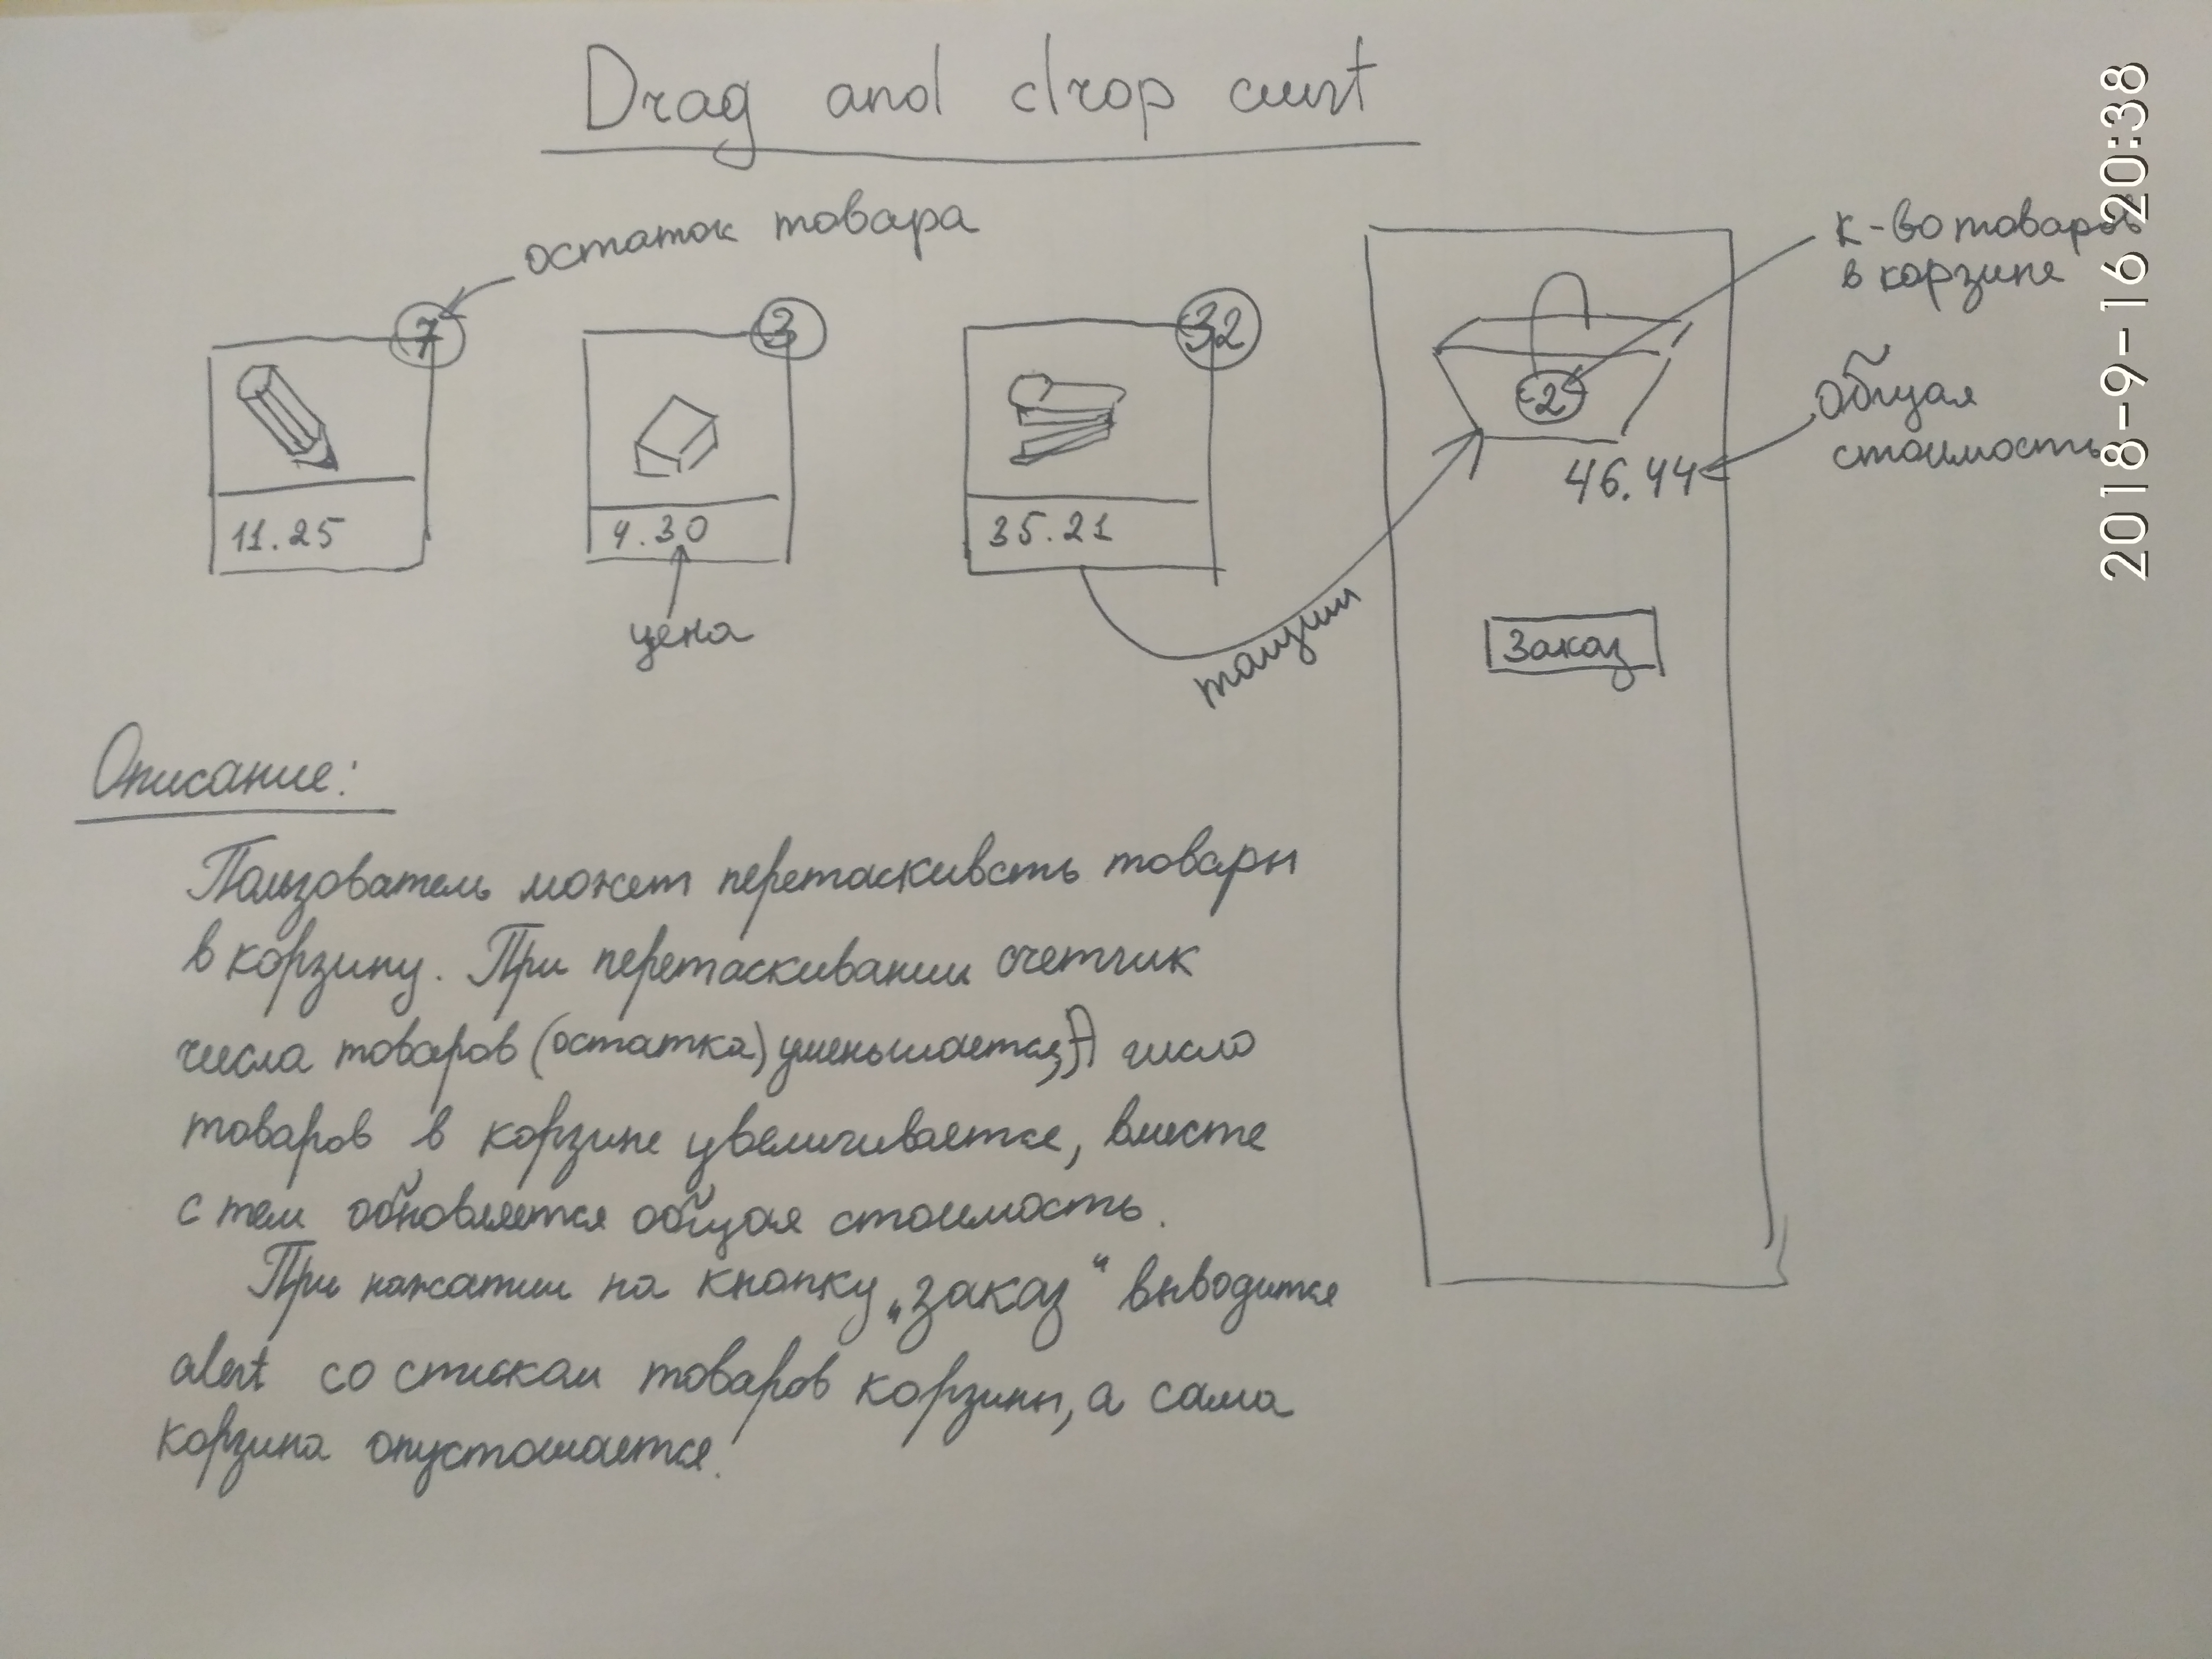 Drag and drop cart
остаток товара
к-во товаров
в корзине
7
3
32
2
Общая
стоимость
46.44
11.25
4.30
35.21
цена
тащим
Заказ
Описание:
Пользователь может перетаскивать товары
в корзину. При перетаскивании счетчик
числа товаров (остатка) уменьшается, А число
товаров в корзине увеличивается, вместе
с тем обновляется общая стоимость.
При нажатии на кнопку „заказ“ выводится
alert со списком товаров корзины, а сама
корзина опустошается.
2018-9-16 20:38